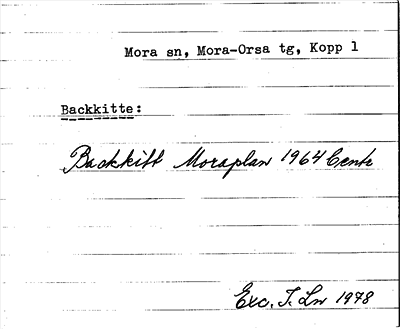 Mora sn, Mora-Orsa tg, Kopp 1
Backkitte:
Backkitt Moraplan 1964 Centr
Exc. T. Ln 1978